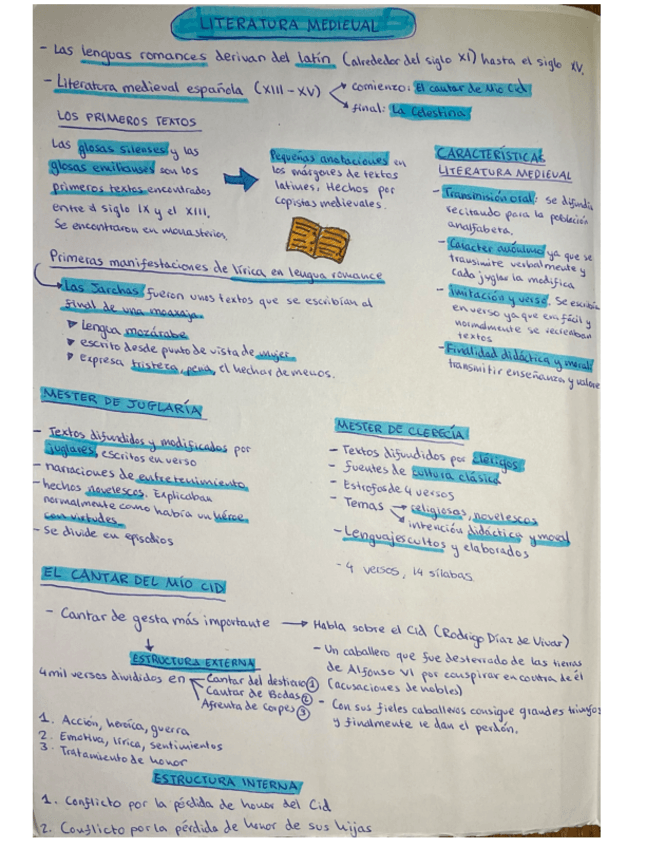 LITERATURA MEDIEVAL
- Las lenguas romances derivan del latín (alrededor del siglo XI) hasta el siglo XV.
- Literatura medieval española (XIII - XV)
comienzo: El cantar de Mio Cid
final: La Celestina
LOS PRIMEROS TEXTOS
Las glosas silenses y las
glosas emilianses son los
primeros textos encontrados
entre el siglo IX y el XIII.
Se encontraron en monasterios.
Pequeñas anotaciones en
los márgenes de textos
latinos, Hechos por
copistas medievales.
CARACTERÍSTICAS
LITERATURA MEDIEVAL
- Transmisión oral: se difundía
recitando para la población
analfabeta.
- Carácter anónimo ya que se
transmite verbalmente y
cada juglar la modifica
- Imitación y verso. Se escribía
en verso ya que era fácil y
normalmente se recreaban
textos
- Finalidad didáctica y moral:
transmitir enseñanza y valores
Primeras manifestaciones de lírica en lengua romance
Las Jarchas fueron unos textos que se escribían al
final de una moaxaja.
Lengua mozárabe
escrito desde punto de vista de mujer
expresa tristeza, pena, el hechar de menos.
MESTER DE JUGLARÍA
- Textos difundidos y modificados por
juglares, escritos en verso
- narraciones de entretenimiento
- hechos novelescos. Explicaban
normalmente como había un héroe
con virtudes
- Se divide en episodios
MESTER DE CLERECÍA
- Textos difundidos por clérigos
- fuentes de cultura clásica
- Estrofas de 4 versos
- Temas
religiosas, novelescos
intención didáctica y moral
- Lenguajes cultos y elaborados
- 4 versos, 14 sílabas
EL CANTAR DEL MÍO CID
- Cantar de gesta más importante
Habla sobre el Cid (Rodrigo Díaz de Vivar)
- Un caballero que fue desterrado de las tierras
de Alfonso VI por conspirar en contra de él
(acusaciones de nobles)
- Con sus fieles caballeros consigue grandes triunfos
y finalmente le dan el perdón.
ESTRUCTURA EXTERNA
4 mil versos divididos en
Cantar del destierro 1
Cantar de Bodas 2
Afrenta de Corpes 3
1. Acción, heroica, guerra
2. Emotiva, lírica, sentimientos
3. Tratamiento de honor
ESTRUCTURA INTERNA
1. Conflicto por la pérdida de honor del Cid
2. Conflicto por la pérdida de honor de sus hijas